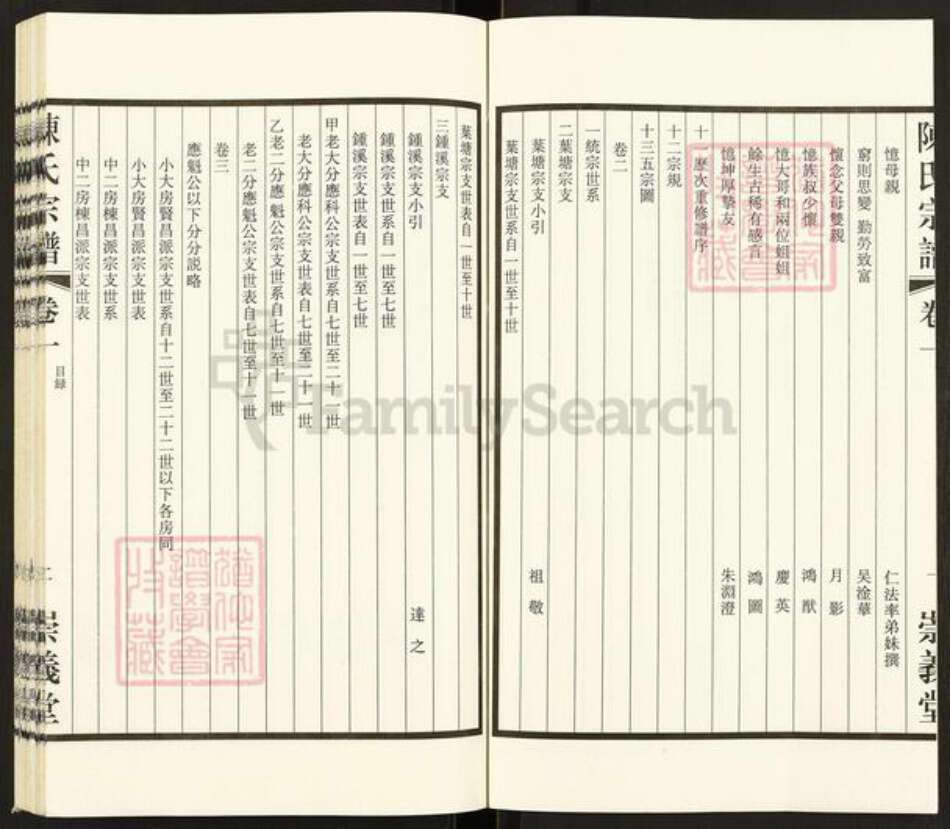 陳氏宗譜 卷一 一 崇義堂
憶母親 仁法率弟妹撰
窮則思變 勤勞致富 吴淦華
懷念父母雙親 月影
憶族叔少懷 鴻猷
憶大哥和兩位姐姐 慶英
餘生古稀有感言 鴻圖
憶坤厚摯友 朱淵澄
十一歷次重修譜序
十二宗規
十三五宗圖
卷二
一統宗世系
二葉塘宗支
葉塘宗支小引 祖敬
葉塘宗支世系自一世至十世
葉塘宗支世表自一世至十世
三鍾溪宗支
鍾溪宗支小引 達之
鍾溪宗支世系自一世至七世
鍾溪宗支世表自一世至七世
甲老大分應科公宗支世系自七世至二十一世
老大分應科公宗支世表自七世至二十一世
乙老二分應魁公宗支世系自七世至十一世
老二分應魁公宗支世表自七世至十一世
卷三
應魁公以下分分説略
小大房賢昌派宗支世系自十二世至二十二世以下各房同
小大房賢昌派宗支世表
中二房棟昌派宗支世系
中二房棟昌派宗支世表
陳氏宗譜 卷一 目録 二 崇義堂
FamilySearch